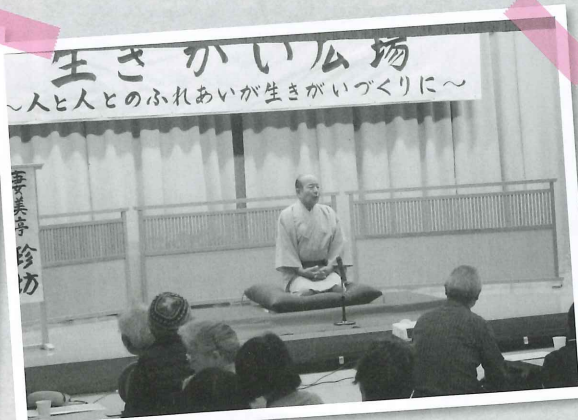 生きがい広場
～人と人とのふれあいが生きがいづくりに～
妻美亭 珍坊